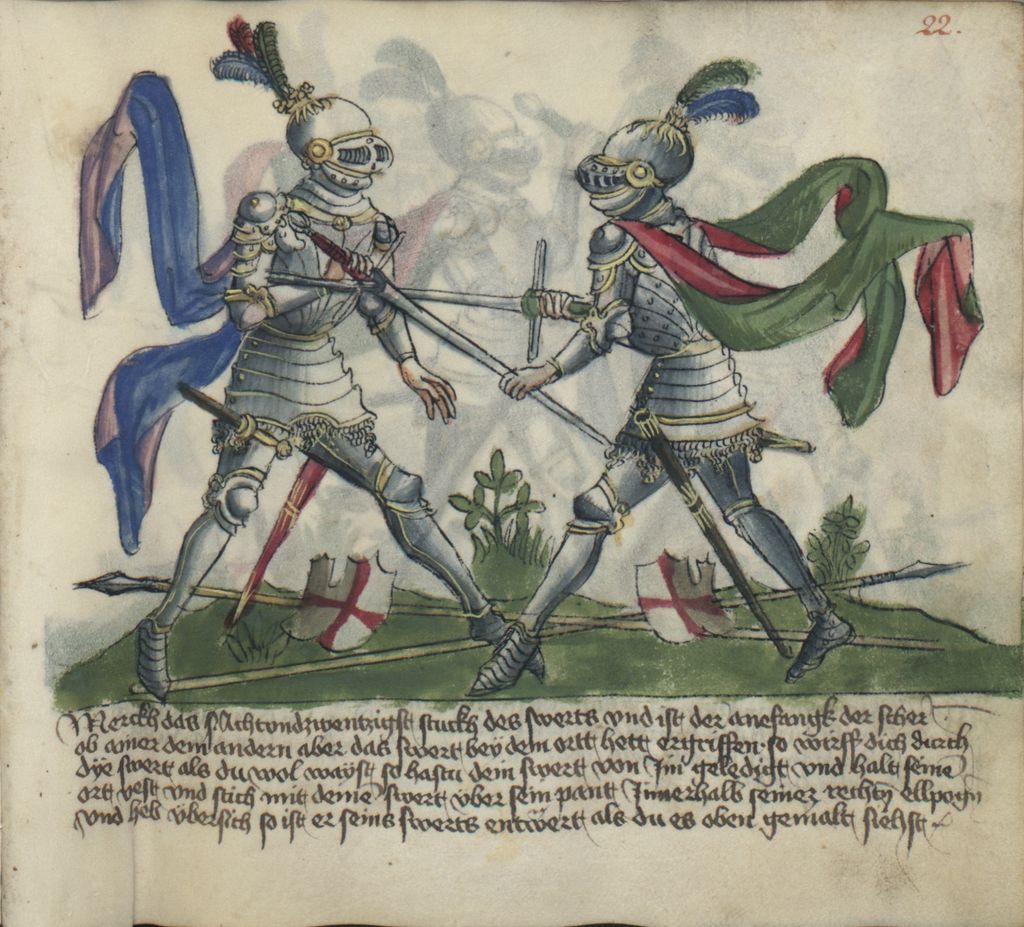 22.
Merckh das Achtundzwentzigst stuckh des swerts vnd ist der anefangk der scher
ob ainer dem andern aber das swert bey dem ortt hett ergriffen so wirff dich durch
dye swert als du wol wayst so hastu dein swert von Im geledigt vnd halt seinē
ort vest vnd stich mit deinē swert vber sein pant Innerhalb seinez rechtn ellpogn
vnd heb vbersich so ist er seins swerts entwert als du es oben gemalt siehst